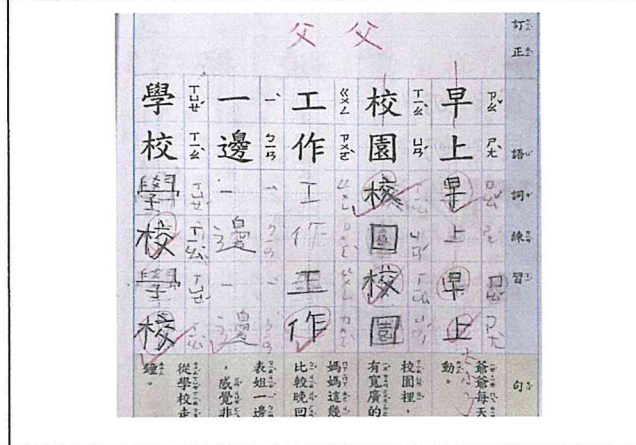 訂正
父父
語詞練習
早上
ㄗㄠˇ ㄕㄤˋ
早上
早上
校園
ㄒㄧㄠˋ ㄩㄢˊ
校園
校園
工作
ㄍㄨㄥ ㄗㄨㄛˋ
工作
工作
一邊
ㄧˋ ㄅㄧㄢ
一邊
一邊
學校
ㄒㄩㄝˊ ㄒㄧㄠˋ
學校
學校
句
爺爺每天
動。
校園裡,
有寬廣的
媽媽這幾
比較晚回
表姐一邊
,感覺非
從學校走
鐘。